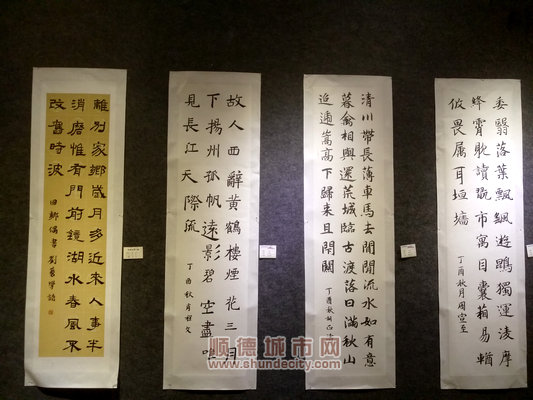 離別家鄉歲月多近來人事半
消磨惟有門前鏡湖水春風不
改舊時波
回鄉偶書
故人西辭黃鶴樓煙花三月
下揚州孤帆遠影碧空盡唯
見長江天際流
丁酉秋月程文
清川帶長薄車馬去閒閒流水如有意
暮禽相與還荒城臨古渡落日滿秋山
迢遞嵩高下歸來且閉關
丁酉秋
委翳落葉飄颻遊鵾獨運淩摩
絳霄耽讀翫市寓目囊箱易輶
攸畏属耳垣墻
丁酉秋月周宣至
顺德城市网
www.shundecity.com